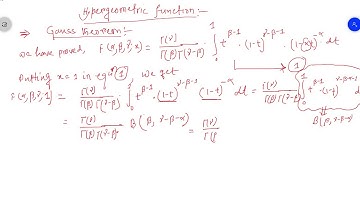 Hypergeometric function:-
⇒ Gauss theorem:-
we have proved, F(α,β,γ;x) = Γ(γ) / Γ(β)Γ(γ-β) ∫₀¹ t^(β-1) · (1-t)^(γ-β-1) · (1-xt)^(-α) dt
Putting x=1 in eqⁿ ①, we get ①
F(α,β,γ;1) = Γ(γ) / Γ(β)Γ(γ-β) ∫₀¹ t^(β-1) · (1-t)^(γ-β-1) · (1-t)^(-α) dt = Γ(γ) / Γ(β)Γ(γ-β) ∫₀¹ t^(β-1) · (1-t)^(γ-β-α-1) d
= Γ(γ) / Γ(β)Γ(γ-β) B(β, γ-β-α) = Γ(γ) / Γ(β
B(β, γ-β-α)